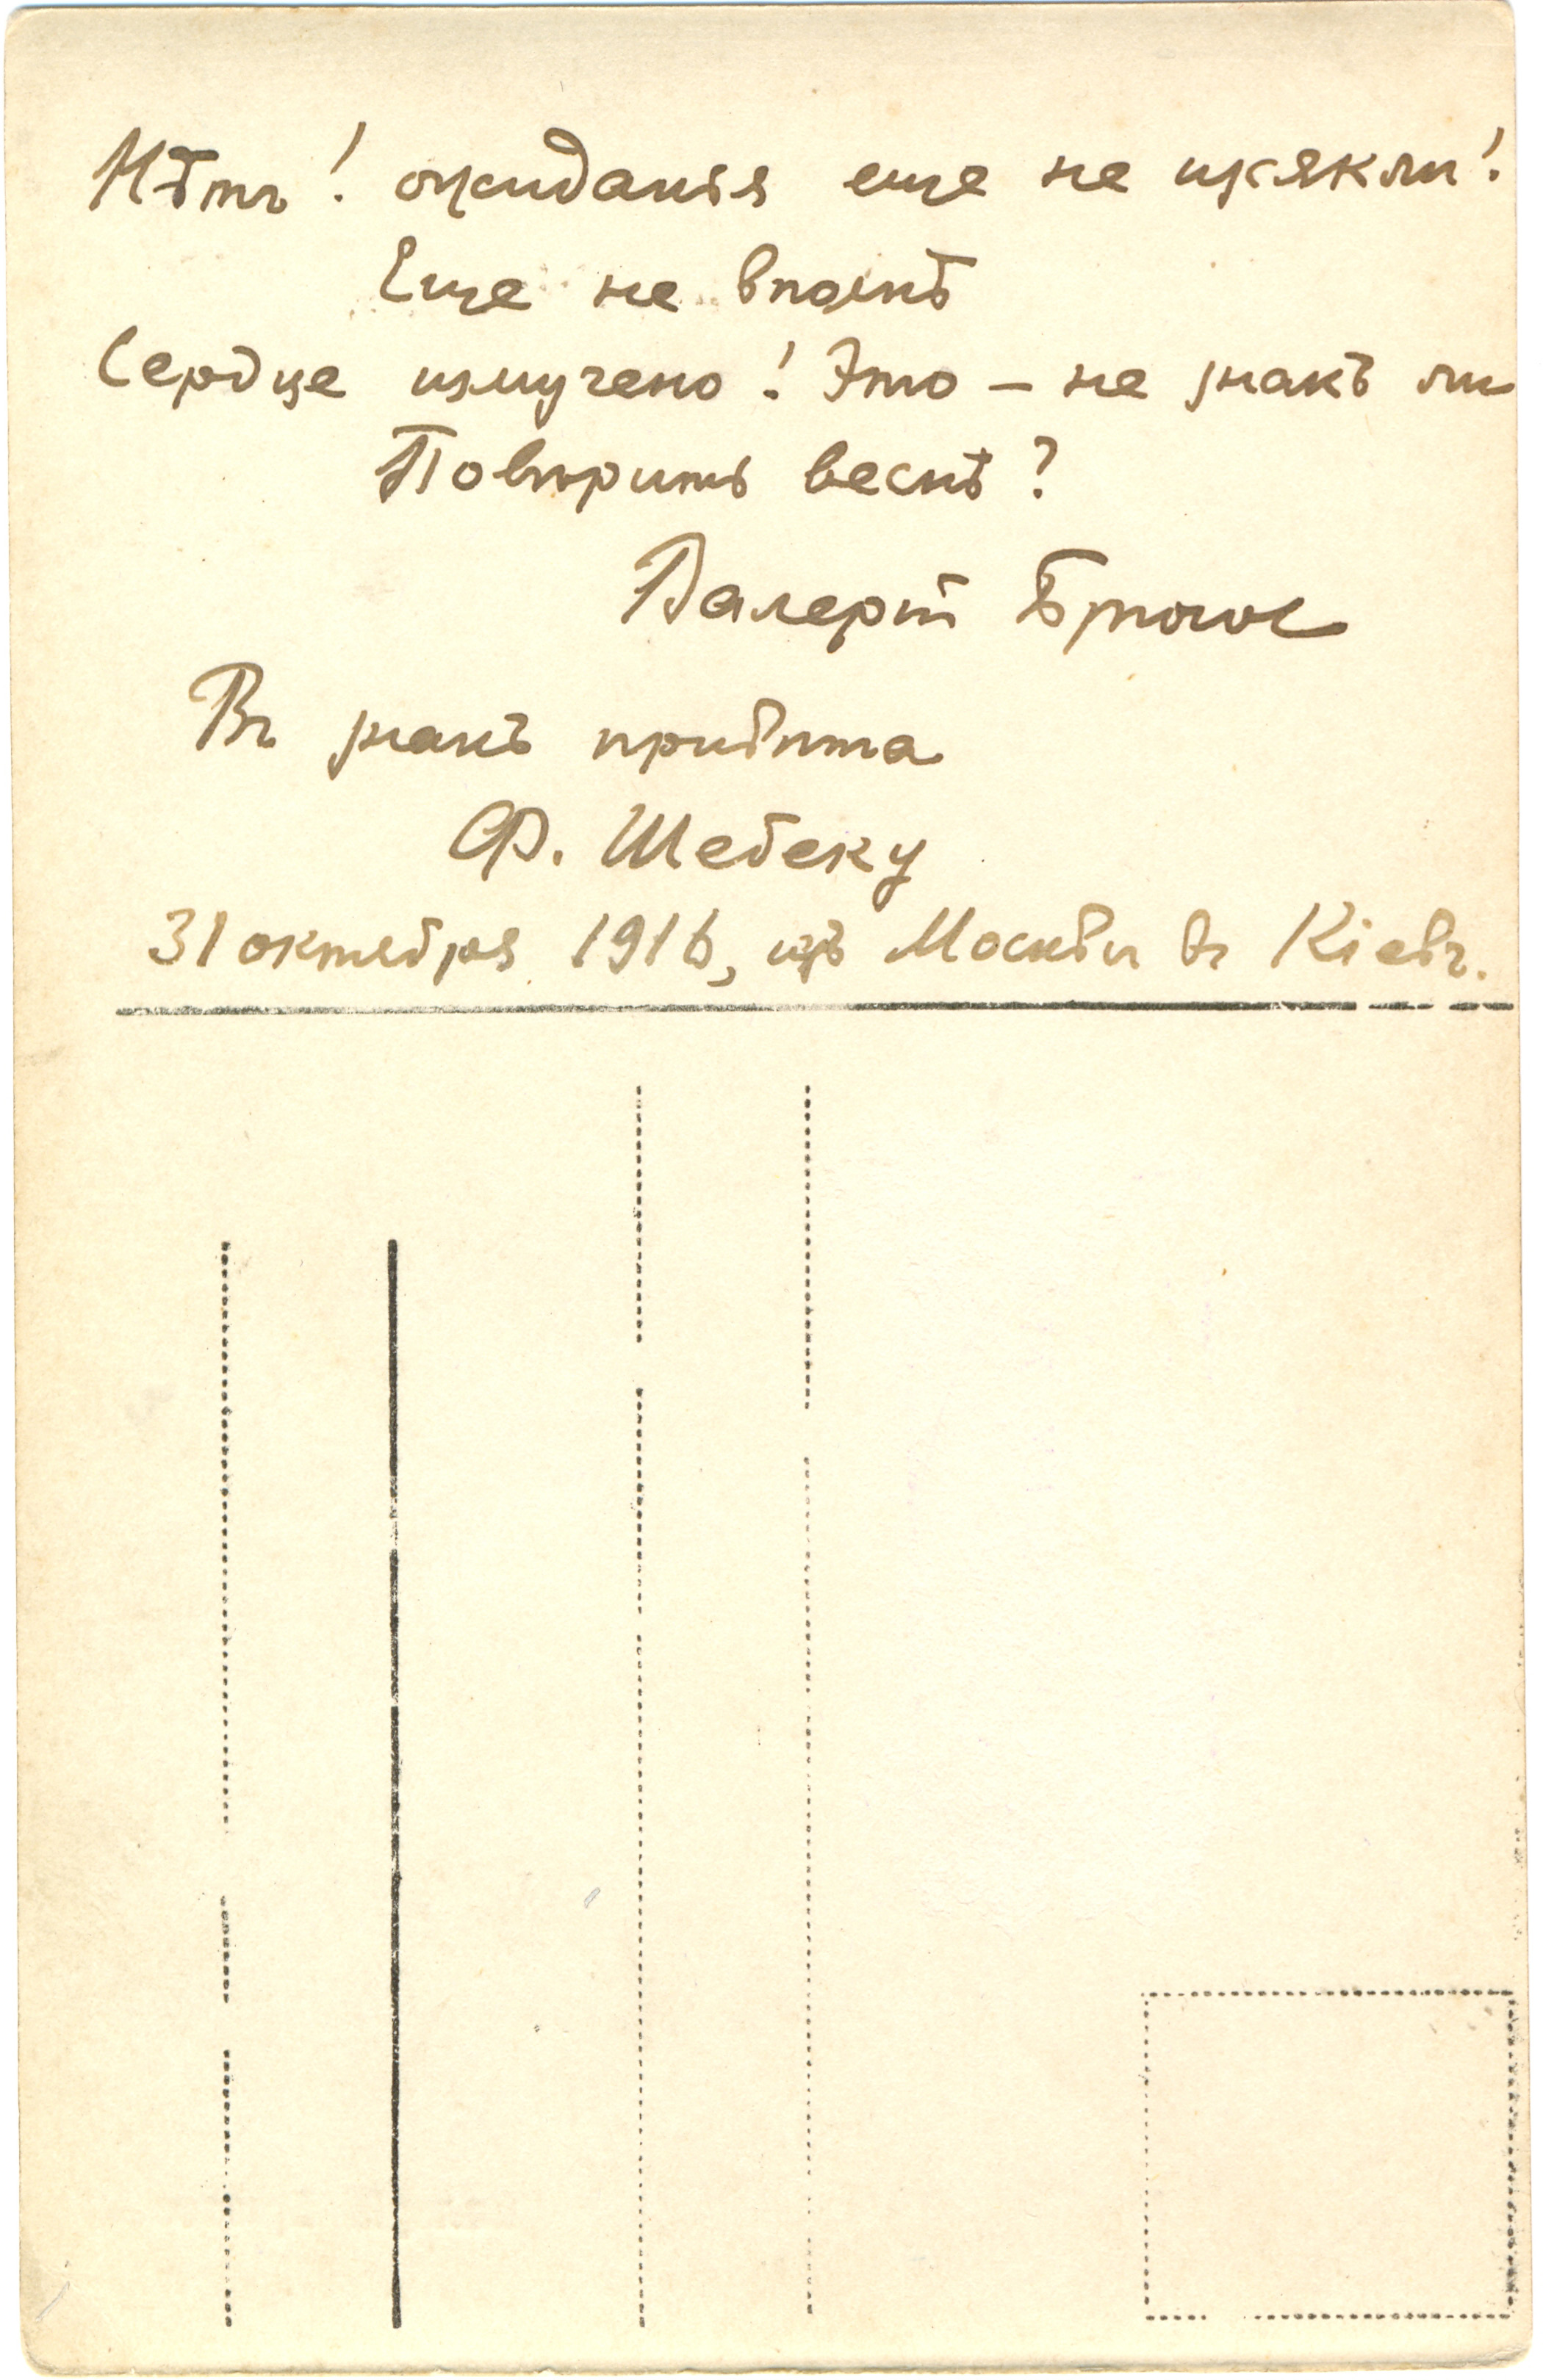 Нѣтъ! ожиданья еще не изсякли!
Еще не вполнѣ
Сердце измучено! Это – не знакъ ли
Повѣрить веснѣ?
Валерій Брюсов
Въ знакъ привѣта
Ф. Шебеку
31 октября 1916, изъ Москвы въ Кіевъ.